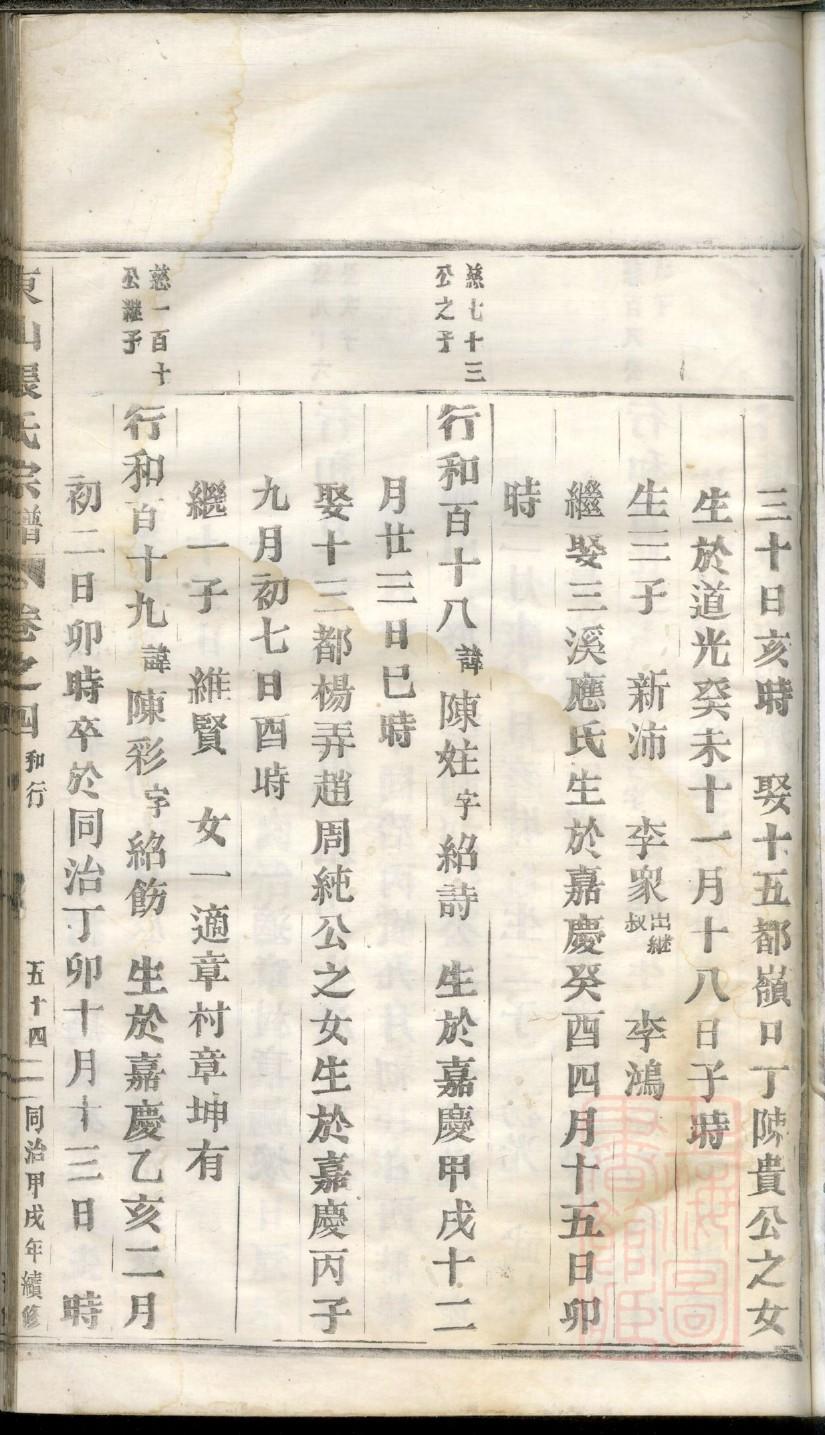 三十日亥時　娶十五都嶺口丁陳貴公之女
生於道光癸未十一月十八日子時
生三子　新沛　李衆出継叔　李鴻
繼娶三溪應氏生於嘉慶癸酉四月十五日卯
時
慈七十三公之子
行和百十八諱陳妵字紹詩　生於嘉慶甲戌十二
月廿三日巳時
娶十三都楊弄趙周純公之女生於嘉慶丙子
九月初七日酉時
繼一子　維賢　女一適章村章坤有
慈一百十公繼子
行和百十九諱陳彩字紹飭　生於嘉慶乙亥二月
初二日卯時卒於同治丁卯十月十三日　時
東山張氏宗譜　卷之四　和行　五十四　同治甲戌年續修